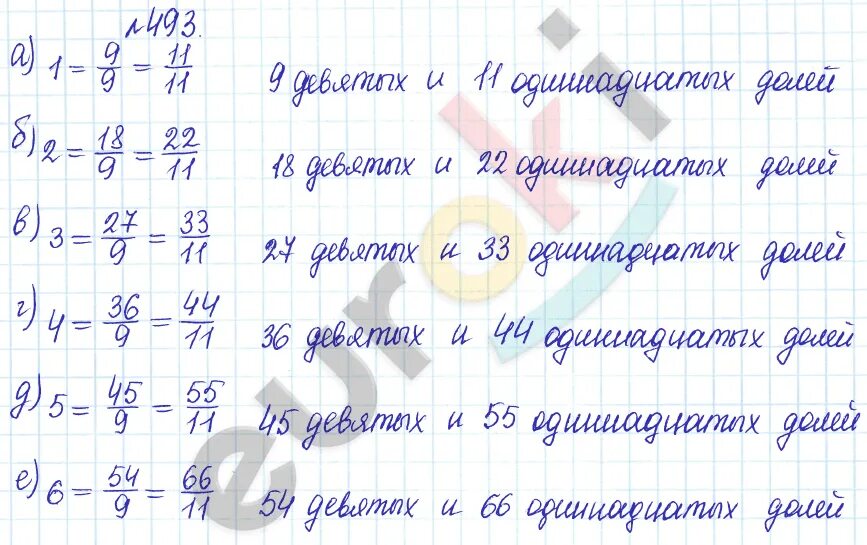 №493.
а) 1 = 9/9 = 11/11 9 девятых и 11 одиннадцатых долей
б) 2 = 18/9 = 22/11 18 девятых и 22 одиннадцатых долей
в) 3 = 27/9 = 33/11 27 девятых и 33 одиннадцатых долей
г) 4 = 36/9 = 44/11 36 девятых и 44 одиннадцатых долей
д) 5 = 45/9 = 55/11 45 девятых и 55 одиннадцатых долей
е) 6 = 54/9 = 66/11 54 девятых и 66 одиннадцатых долей
euroki